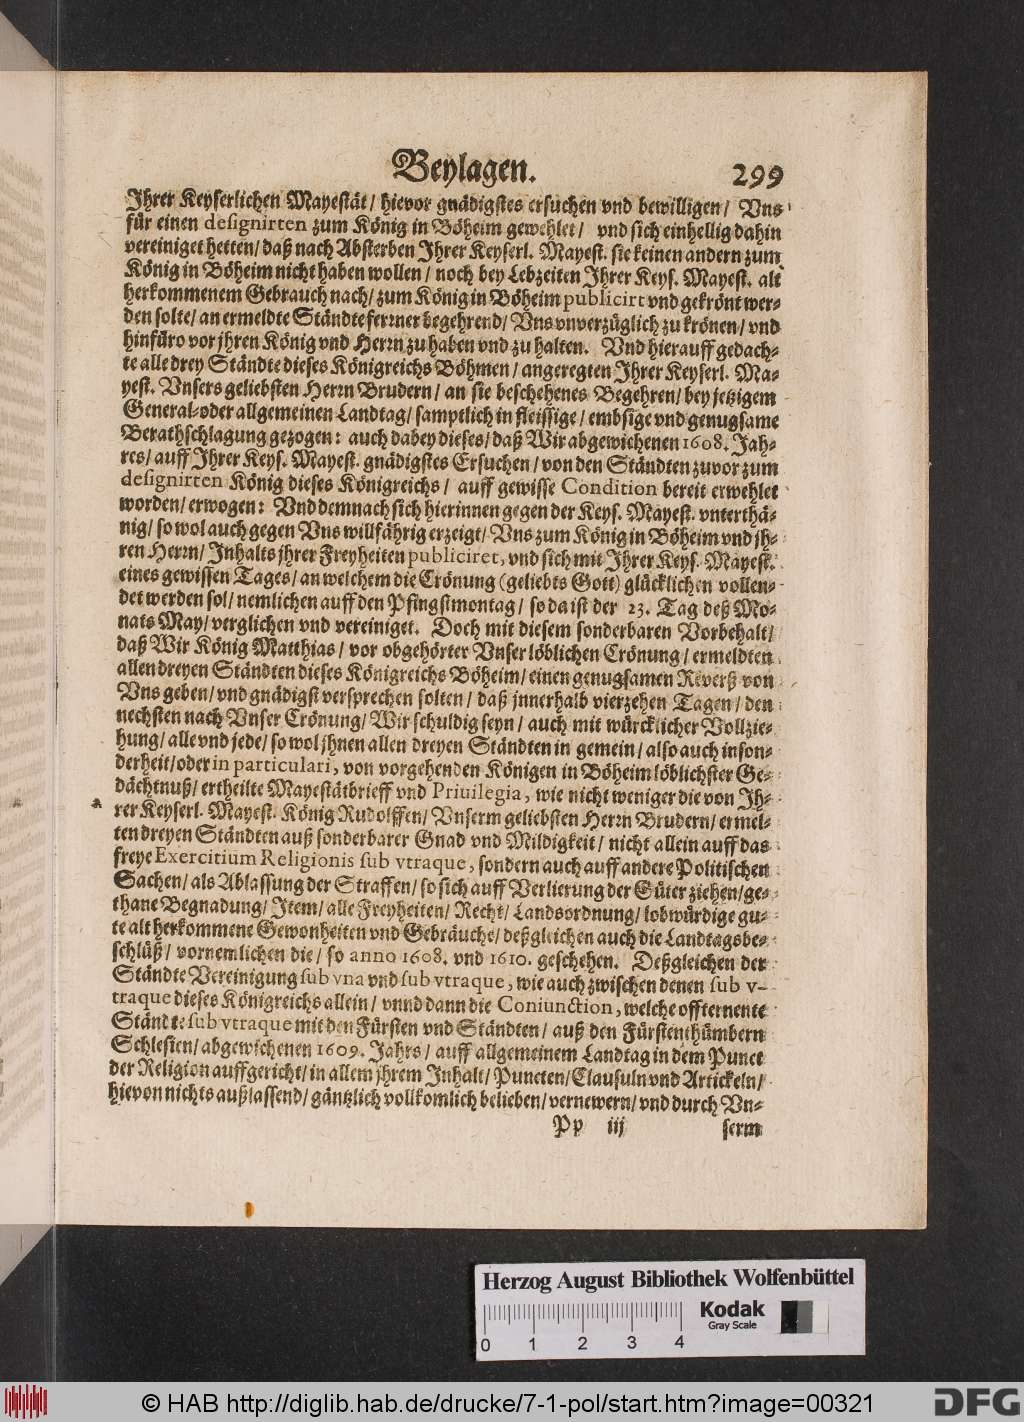 Beylagen. 299
Ihrer Keyserlichen Mayestät/ hievor gnädigstes ersuchen vnd bewilligen/ Vns
für einen designirten zum König in Böheim gewehlet/ vnd sich einhellig dahin
vereiniget hetten/ daß nach Absterben Ihrer Keyserl. Mayest. sie keinen andern zum
König in Böheim nicht haben wollen/ noch bey Lebzeiten Ihrer Keys. Mayest. alt
herkommenem Gebrauch nach/ zum König in Böheim publicirt vnd gekrönt wer-
den solte/ an ermeldte Ständte ferrner begehrend/ Vns vnverzüglich zu krönen/ vnd
hinfüro vor jhren König vnd Herrn zu haben vnd zu halten. Vnd hierauff gedach-
te alle drey Ständte dieses Königreichs Böhmen/ angeregten Ihrer Keyserl. Ma-
yest. Vnsers geliebsten Herrn Brudern/ an sie beschehenes Begehren/ bey jetzigem
General- oder allgemeinen Landtag/ samptlich in fleissige/ embsige vnd genugsame
Berathschlagung gezogen: auch dabey dieses/ daß Wir abgewichenen 1608. Jah-
res/ auff Ihrer Keys. Mayest. gnädigstes Ersuchen/ von den Ständten zuvor zum
designirten König dieses Königreichs/ auff gewisse Condition bereit erwehlet
worden/ erwogen: Vnd demnach sich hierinnen gegen der Keys. Mayest. vnterthä-
nig/ so wol auch gegen Vns willfährig erzeigt/ Vns zum König in Böheim vnd jh-
ren Herrn/ Inhalts jhrer Freyheiten publiciret, vnd sich mit Ihrer Keys. Mayest.
eines gewissen Tages/ an welchem die Crönung (geliebts Gott) glücklichen vollen-
det werden sol/ nemlichen auff den Pfingstmontag/ so da ist der 23. Tag deß Mo-
nats May/ verglichen vnd vereiniget. Doch mit diesem sonderbaren Vorbehalt/
daß Wir König Matthias/ vor obgehörter Vnser löblichen Crönung/ ermeldten
allen dreyen Ständten dieses Königreichs Böheim/ einen genugsamen Reverß von
Vns geben/ vnd gnädigst versprechen solten/ daß jnnerhalb vierzehen Tagen/ den
nechsten nach Vnser Crönung/ Wir schuldig seyn/ auch mit würcklicher Vollzie-
hung/ alle vnd jede/ so wol jhnen allen dreyen Ständten in gemein/ also auch inson-
derheit/ oder in particulari, von vorgehenden Königen in Böheim löblichster Ge-
dächtnuß/ ertheilte Mayestätbrieff vnd Priuilegia, wie nicht weniger die von Ih-
rer Keyserl. Mayest. König Rudolffen/ Vnserm geliebsten Herrn Brudern/ ermel-
ten dreyen Ständten auß sonderbarer Gnad vnd Mildigkeit/ nicht allein auff das
freye Exercitium Religionis sub vtraque, sondern auch auff andere Politischen
Sachen/ als Ablassung der Straffen/ so sich auff Verlierung der Güter ziehen/ ge-
thane Begnadung/ Item/ alle Freyheiten/ Recht/ Landsordnung/ lobwürdige gu-
te alt herkommene Gewonheiten vnd Gebräuche/ deßgleichen auch die Landtagsbe-
schlüß/ vornemlichen die/ so anno 1608. vnd 1610. geschehen. Deßgleichen der
Ständte Vereinigung sub vna vnd sub vtraque, wie auch zwischen denen sub v-
traque dieses Königreichs allein/ vnnd dann die Coniunction, welche offternente
Stände sub vtraque mit den Fürsten vnd Ständten/ auß den Fürstenthümbern
Schlesien/ abgewichenen 1609. Jahrs/ auff allgemeinem Landtag in dem Punct
der Religion auffgericht/ in allem jhrem Inhalt/ Puncten/ Clausuln vnd Artickeln/
hievon nichts außlassend/ gäntzlich vollkomlich belieben/ vernewern/ vnd durch Vn-
Pp iij serm
Herzog August Bibliothek Wolfenbüttel
Kodak
Gray Scale
0 1 2 3 4
© HAB http://diglib.hab.de/drucke/7-1-pol/start.htm?image=00321
DFG